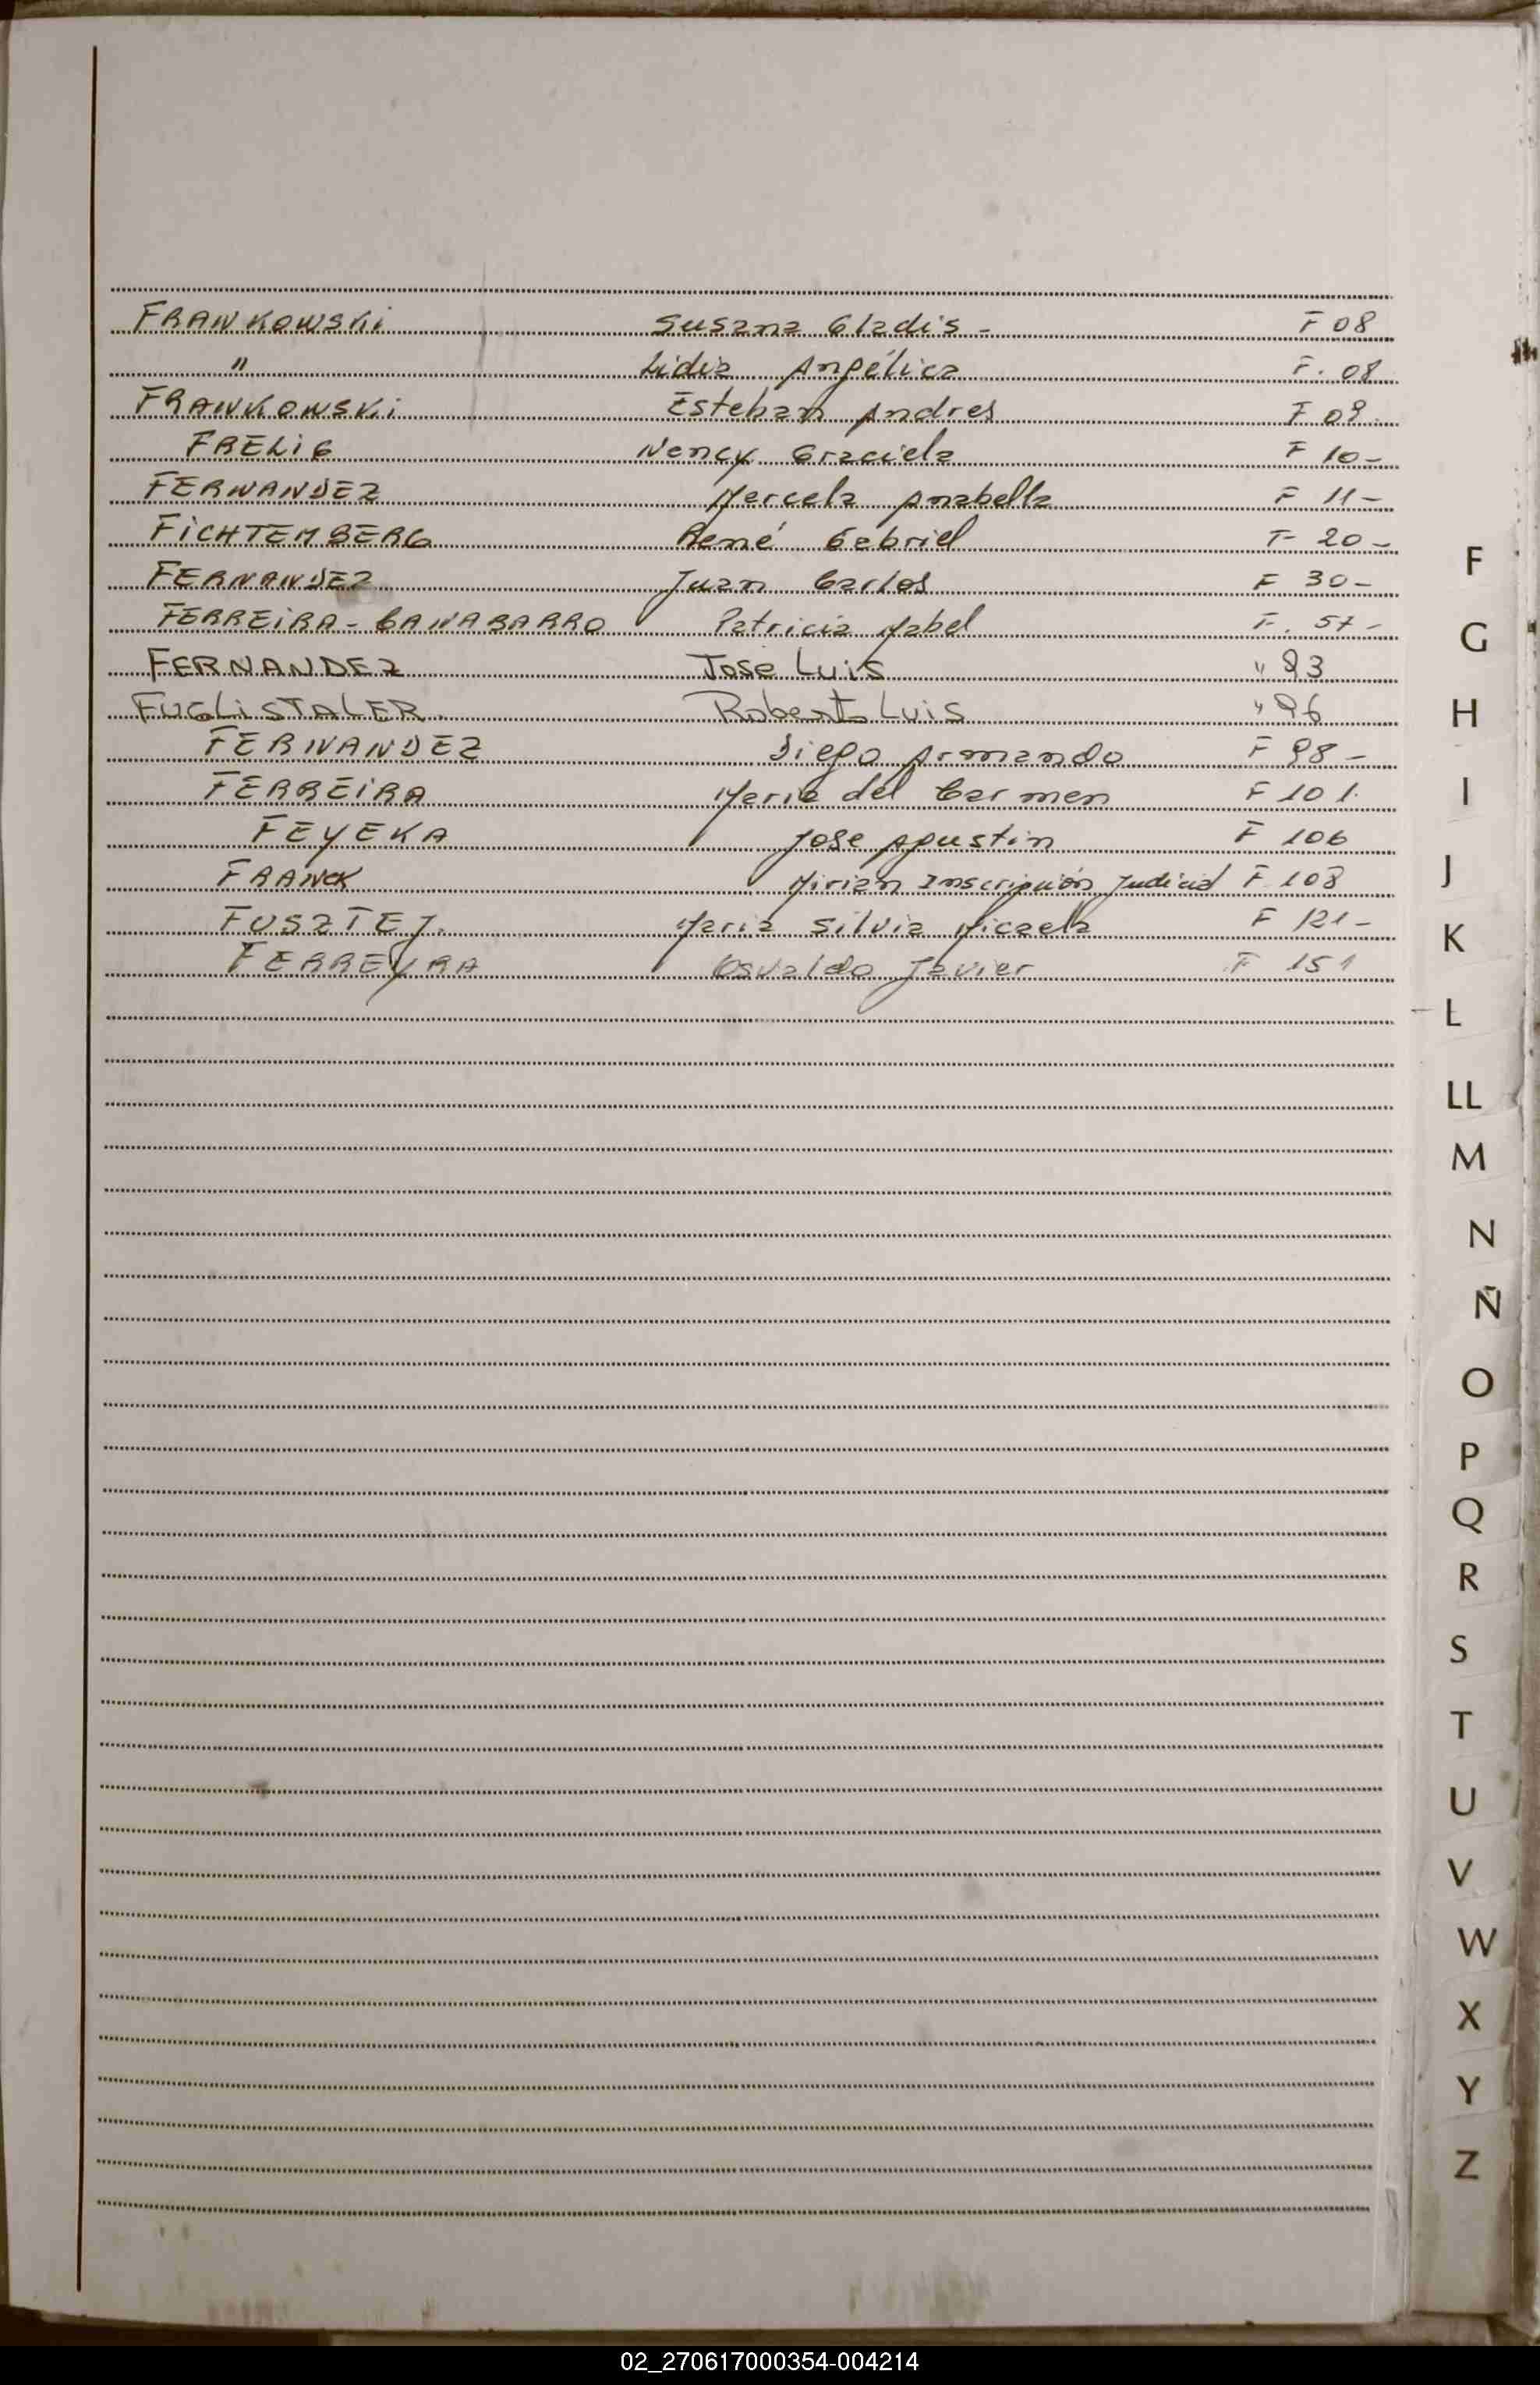 FRANKOWSKi Susana Gladis - F 08
" Lidia Angélica F. 08
FRANKOWSKi Esteban Andres F 09.
FRELiG Nancy Graciela F 10-
FERNANDEZ Marcela Anabella F 11-
FiCHTEMBERG René Gabriel F 20-
FERNANDEZ Juan Carlos F 30-
FERREiRA - CANABARRO Patricia Mabel F. 57-
FERNANDEZ Jose Luis " 93
FUGLiSTALER. Roberto Luis " 96
FERNANDEZ Diego Armando F 98-
FERREiRA Maria del Carmen F 101.
FEYEKA Jose Agustin F 106
FRANCK Mirian Inscripción Judicial F 108
FUSZTEJ. Maria Silvia Micaela F 121-
FERREYRA Osvaldo Javier F 151
F
G
H
I
J
K
L
LL
M
N
Ñ
O
P
Q
R
S
T
U
V
W
X
Y
Z
02_270617000354-004214